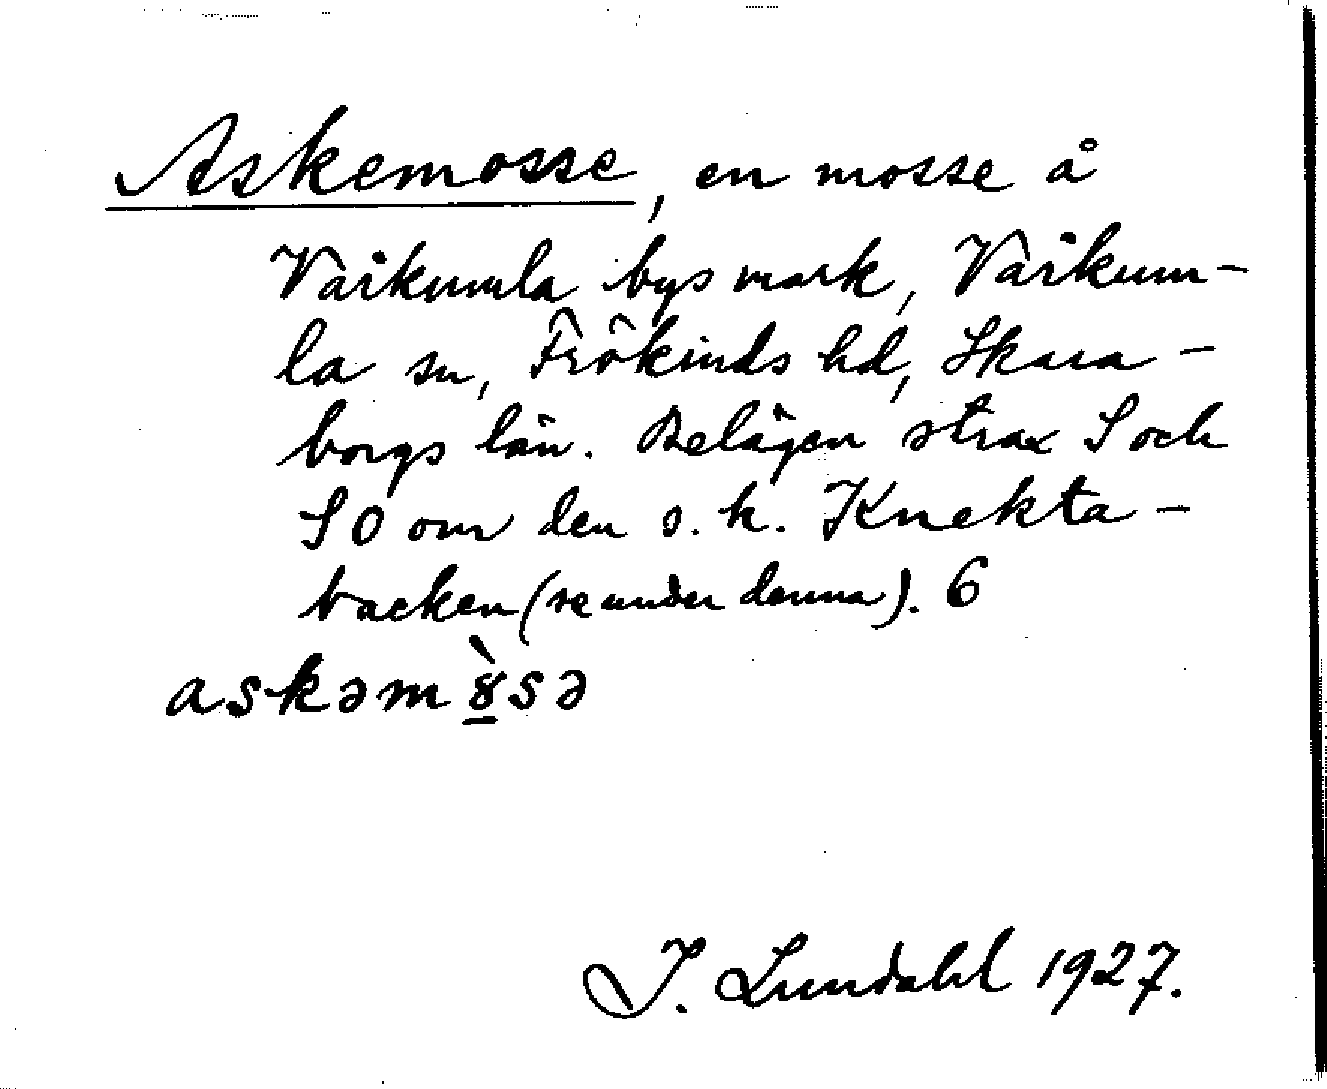 Askemosse, en mosse å
Vårkumla bys mark, Vårkum-
la sn, Frökinds hd, Skara-
borgs län. Belägen strax S och
SO om den s.k. Knekta-
backen (se under denna). 6
askəmɤ̲̀sə
J. Lundahl 1927.